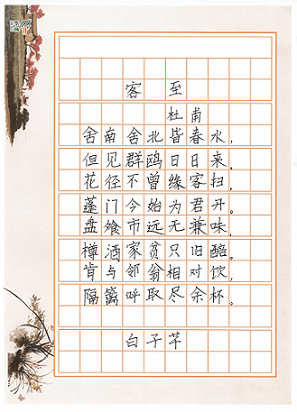 客至
杜甫
舍南舍北皆春水，
但见群鸥日日来。
花径不曾缘客扫，
蓬门今始为君开。
盘飧市远无兼味，
樽酒家贫只旧醅。
肯与邻翁相对饮，
隔篱呼取尽余杯。
白子芊